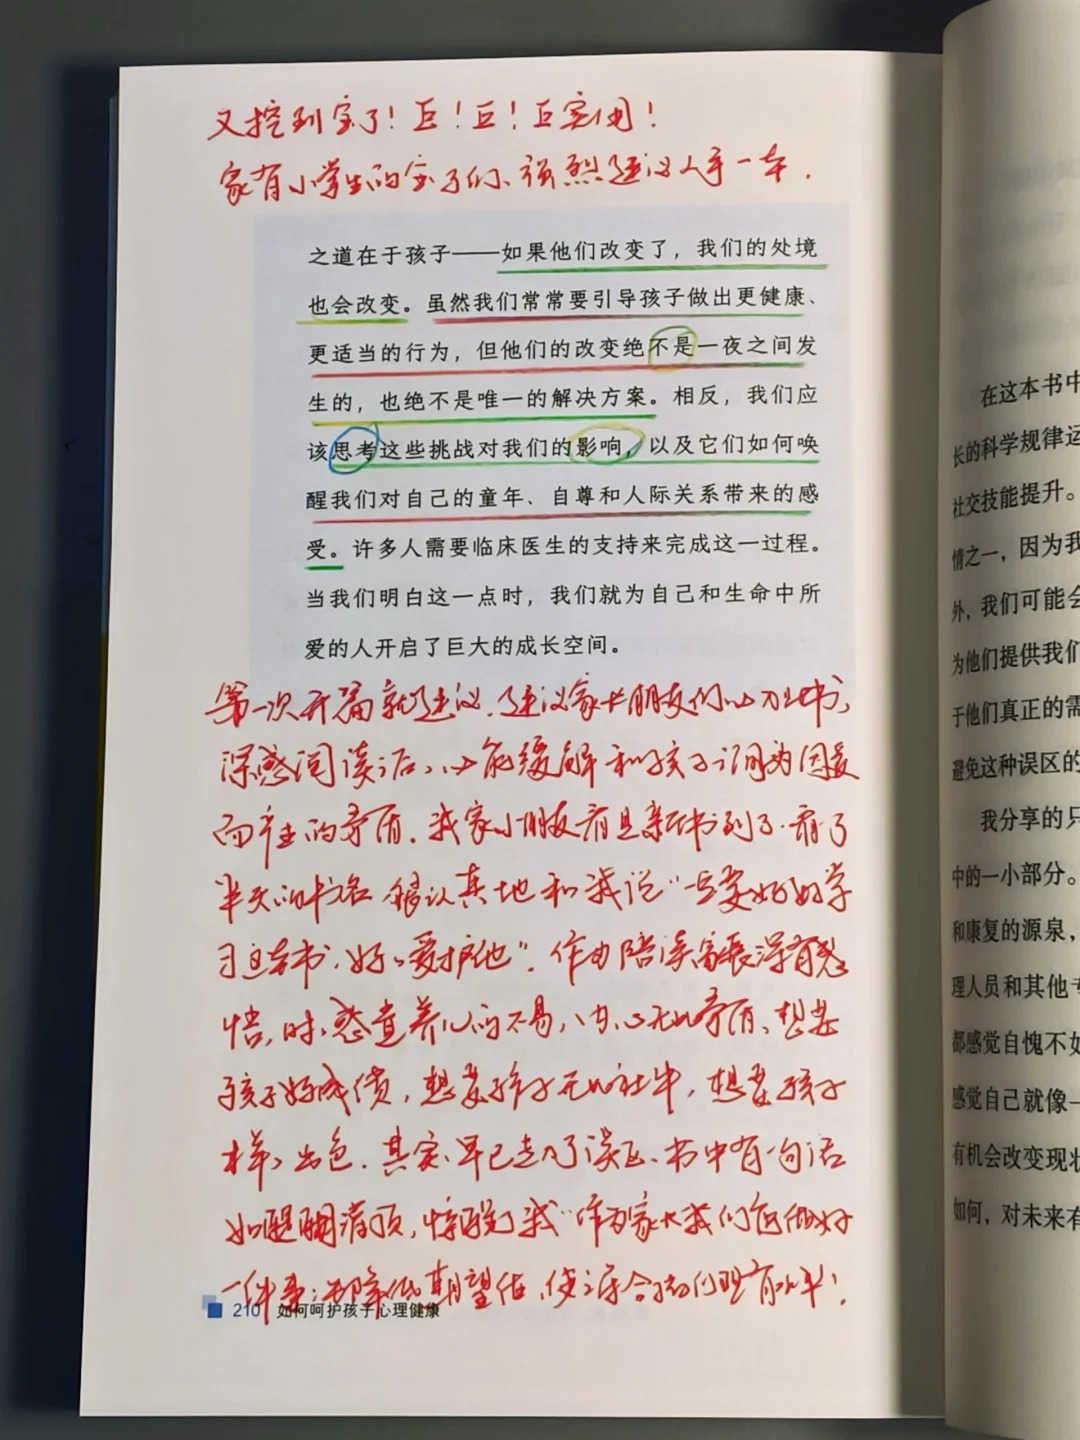 又挖到宝了！巨！巨！巨实用！
家有小学生的宝子们、强烈建议人手一本．
之道在于孩子——如果他们改变了，我们的处境
也会改变。虽然我们常常要引导孩子做出更健康、
更适当的行为，但他们的改变绝不是一夜之间发
生的，也绝不是唯一的解决方案。相反，我们应
该思考这些挑战对我们的影响，以及它们如何唤
醒我们对自己的童年、自尊和人际关系带来的感
受。许多人需要临床医生的支持来完成这一过程。
当我们明白这一点时，我们就为自己和生命中所
爱的人开启了巨大的成长空间。
第一次开篇就建议．建议家长朋友们
深感阅读后、能缓解和孩子认为因
而产生的矛盾．我家小朋友看且新书到了．看了
半天的书名 很认真地和我说“一定要好好学
习这本书，好好爱护他”．作为陪读家长深有感
悟，时 感 养儿的不易，内心无比矛盾、想要
孩子好成绩，想要孩子无比社牛，想要孩子
样样出色．其实、早已走入了误区、书中有一句话
如醍醐灌顶，惊醒了我“作为家长我们应做好
一件事：即降低期望值，使之符合孩子们现有水平！
210 如何呵护孩子心理健康
在这本书中
长的科学规律运
社交技能提升。
情之一，因为我
外，我们可能会
为他们提供我们
于他们真正的需
避免这种误区的
我分享的只
中的一小部分。
和康复的源泉，
理人员和其他专
都感觉自愧不如
感觉自己就像一
有机会改变现状
如何，对未来有